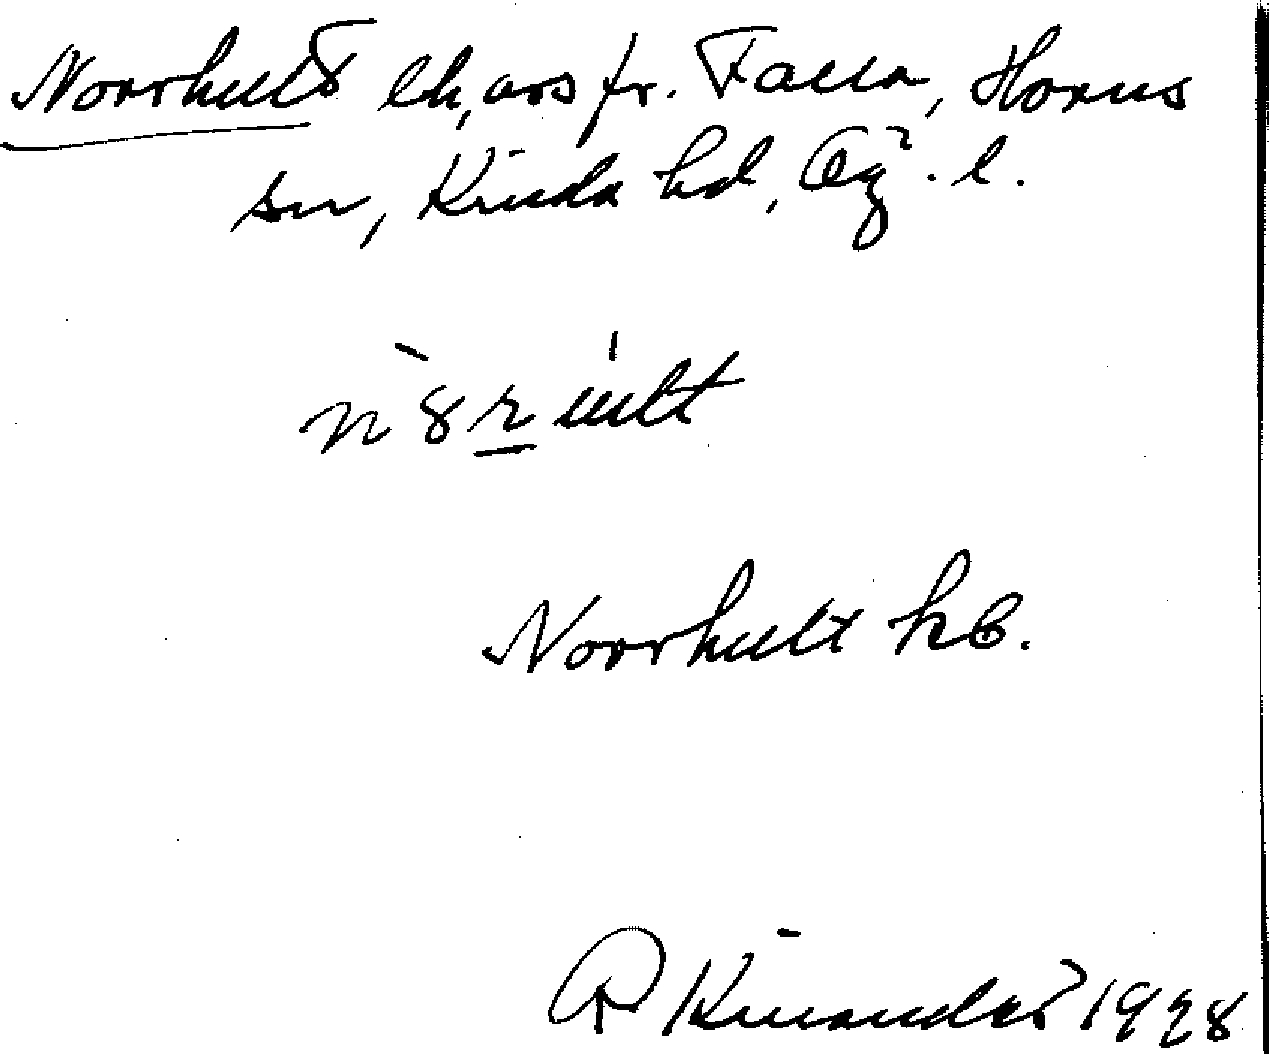 Norrhult lh, avs fr. Falla, Horns
sn, Kinda hd, Ög. l.
n8rult
Norrhult kb.
R Kinander 1928